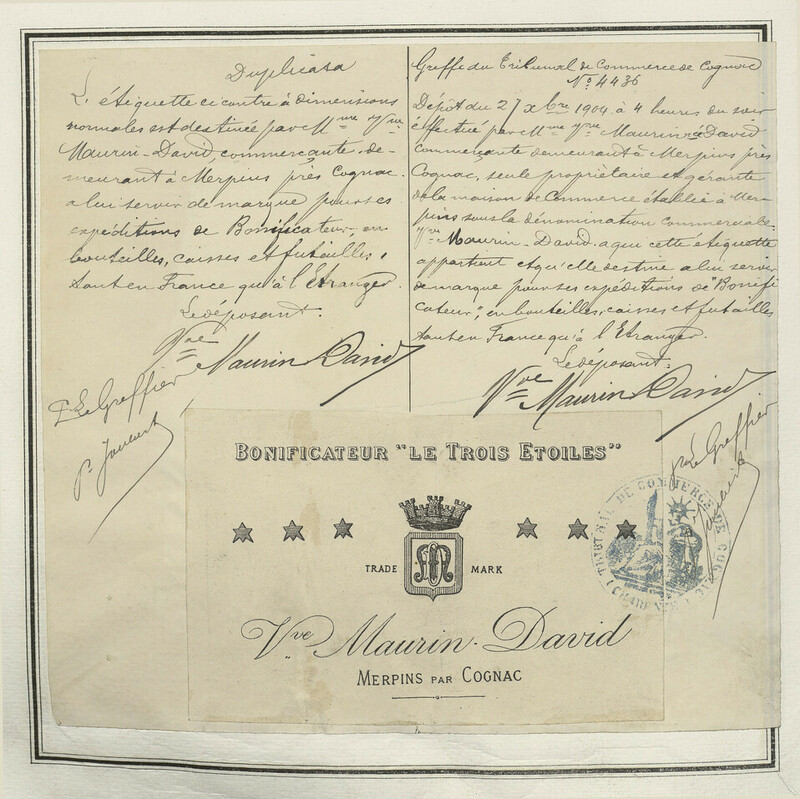 Duplicata
L'étiquette ci contre à dimensions
normales est destinée par Mme Vve
Maurin-David, commercante, de-
meurant à Merpins près Cognac.
a lui servir de marque pour ses
expéditions de Bonificateur, en
bouteilles, caisses et futailles,
tant en France qu'à l'Etranger.
Le déposant:
Vve Maurin David
Le Greffier
Greffe du Tribunal de Commerce de Cognac
No 4436
Dépôt du 27 xbre 1904 à 4 heures du soir
effectué par Mme Vve Maurin née David
commerçante demeurant à Merpins près
Cognac, seule propriétaire et gérante
de la maison de Commerce établie à Mer-
pins sous la dénomination commerciale
Vve Maurin-David. a qui cette étiquette
appartient et qu'elle destine a lui servir
de marque pour ses expéditions de "Bonifi
cateur", en bouteilles, caisses et futailles
tant en France qu'à l'Etranger.
Le déposant:
Vve Maurin David
Le Greffier
BONIFICATEUR "LE TROIS ETOILES"
TRADE MARK
Vve Maurin-David
MERPINS PAR COGNAC
TRIBUNAL DE COMMERCE DE COGNAC
(CHARENTE)